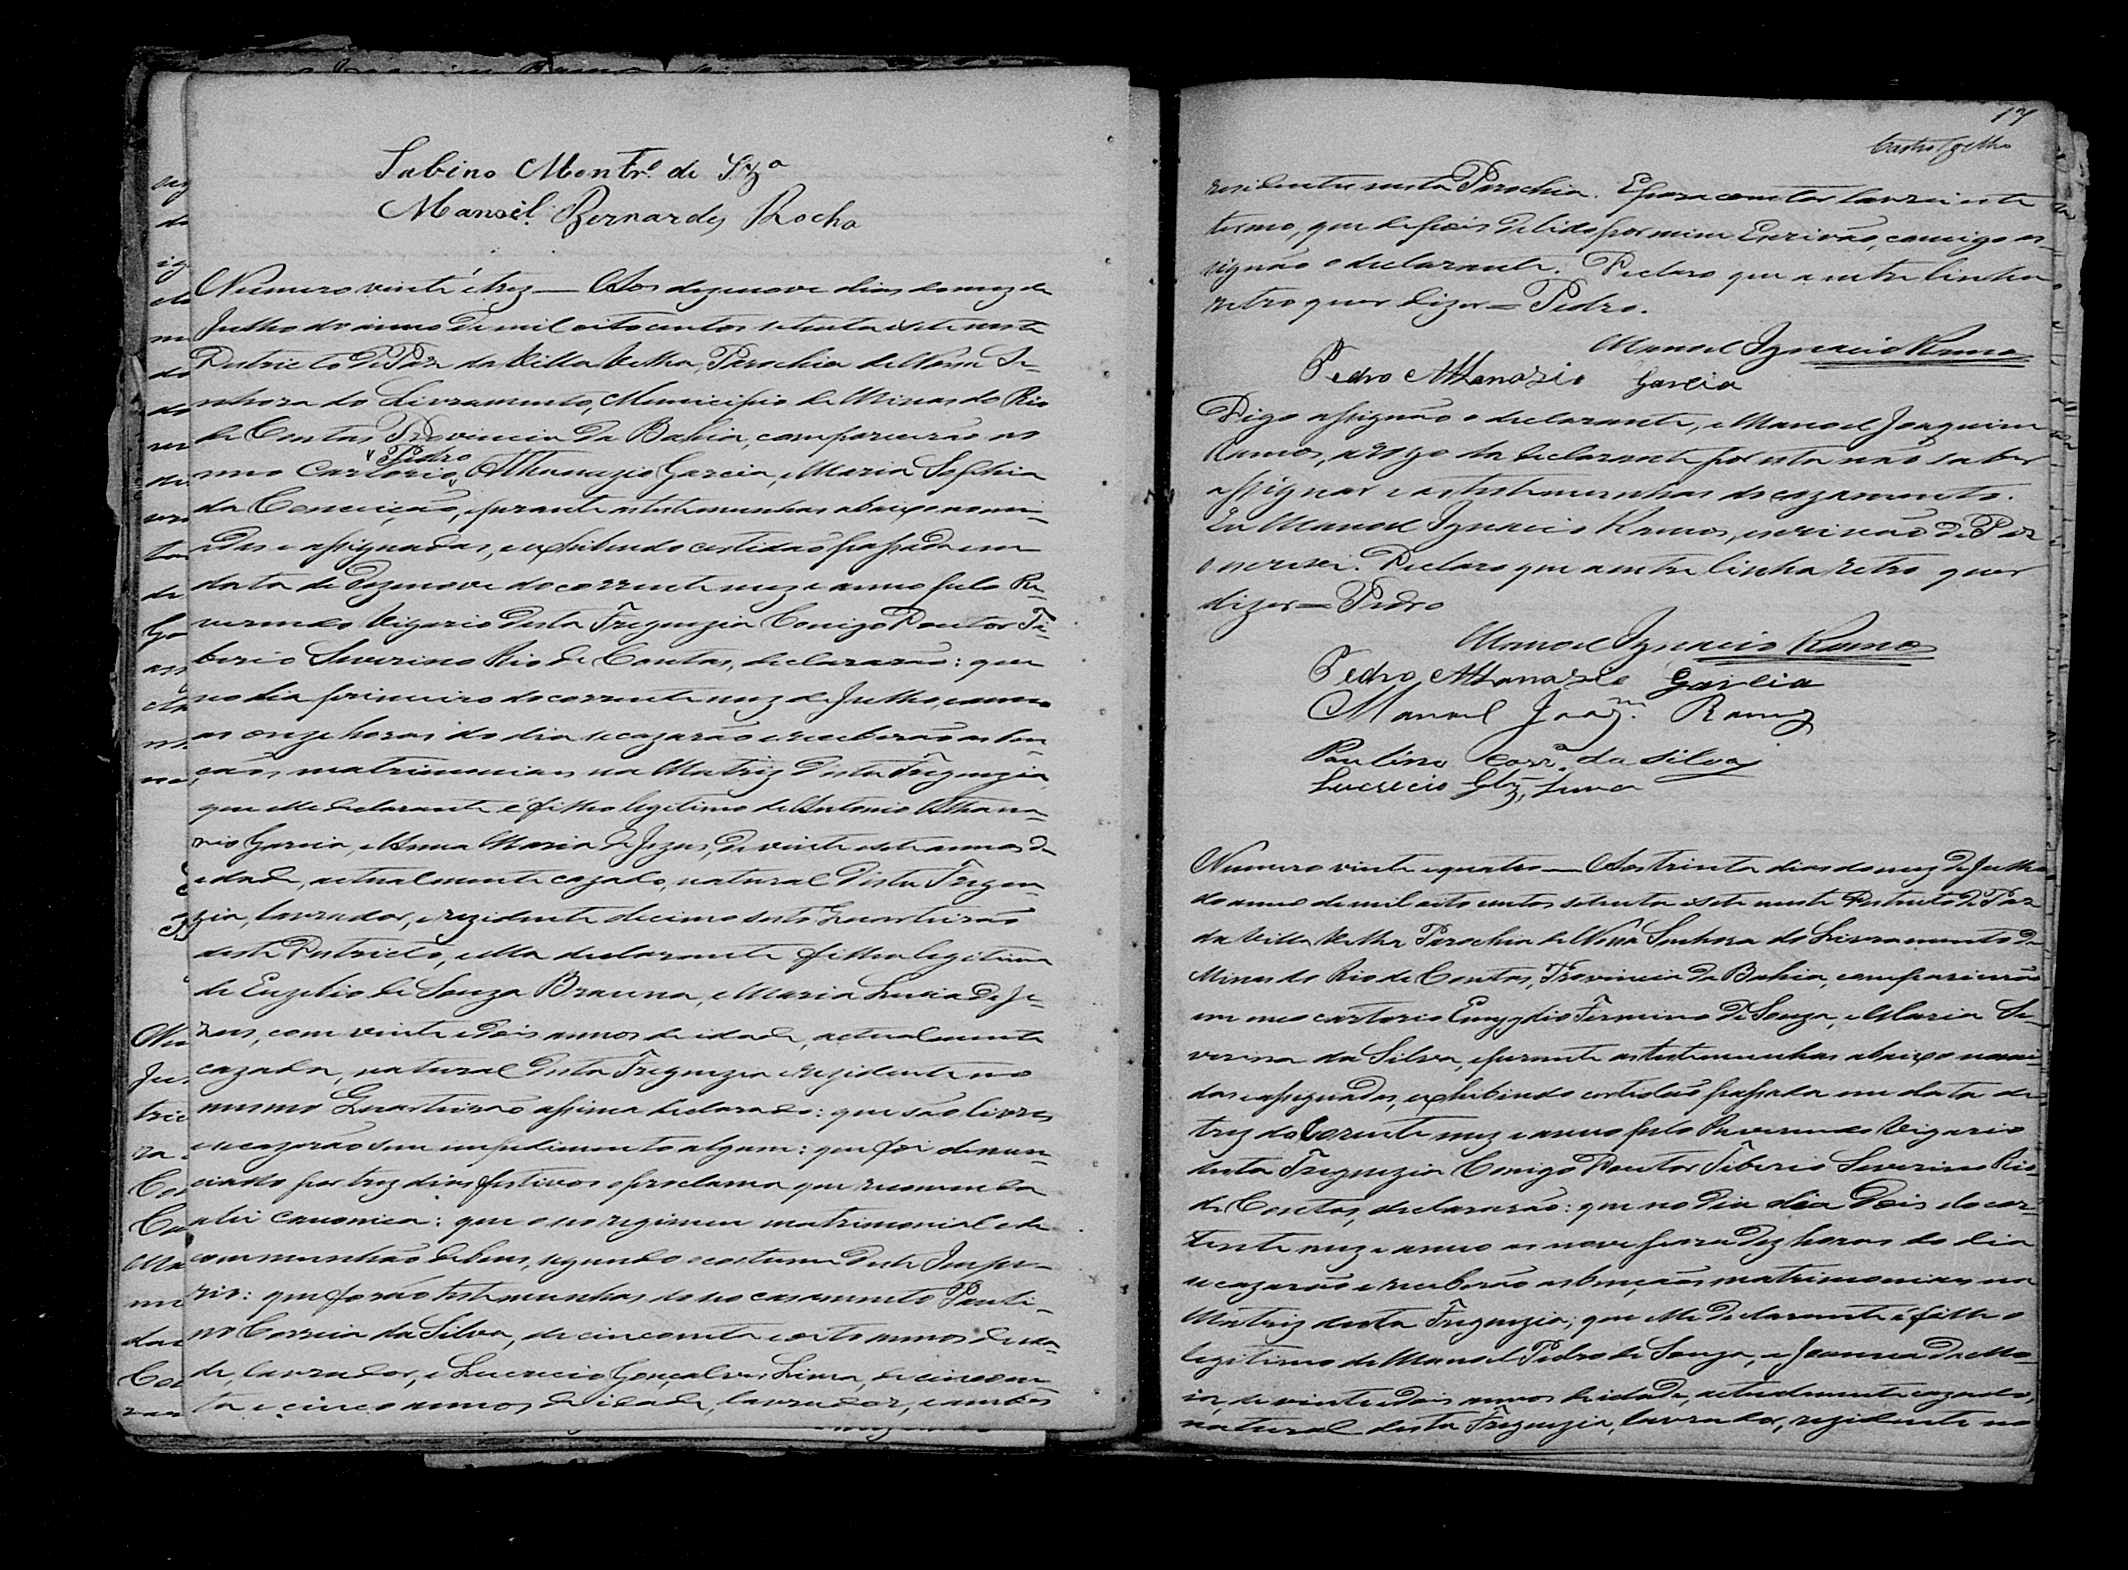 Sabino Montr.º de Sz.ª
Manoel Bernardes Rocha
Numero vinte e trez — Aos dezenove dias do mez de
Julho do anno de mil oito centos setenta e sete neste
Destricto de Paz da Villa Velha, Parochia de Nossa Se-
nhora do Livramento, Municipio de Minas do Rio
de Contas Provincia da Bahia, comparecerão no
Pedro
meo Cartorio, Athanazio Garcia, e Maria Sophia
da Conceição, e perante as testemunhas abaixo nomia-
das e assignadas, e exhibindo certidão passada em
data de dezenove do corrente mez e anno pelo Re-
verendo Vigario desta Freguezia Conigo Doutor Ti-
berio Severino Rio de Contas, declararão: que
no dia primeiro do corrente mez de Julho,
as onze horas do dia se cazarão e receberão as ben-
çãos matrimoniaes na Matriz desta Freguezia
que elle declarante é filho legitimo de Antonio Athana-
zio Garcia, e Anna Maria de Jezus, de vinte e sete annos de
edade, actualmente cazado, natural desta Fregue-
zia, lavrador, e rezidente decimo sesto Quarteirão
deste Destricto, e ella declarante filha legitima
de Euzebio de Souza Brauna, e Maria Luzia de Je-
zus, com vinte e dois annos de idade, actualmente
cazada, natural desta Freguezia e rezidente no
mesmo Quarteirão assima declarado: que são livres
e se cazarão sem impedimento algum: que foi denun-
ciado por trez dias festivos o proclama que recomenda
a lei canonica: que o seo regimen matrimonial é de
communhão de bens, segundo o costume deste Impe-
rio: que forão testemunhas do seo casamento Pauli-
no Correia da Silva, de cincoenta e oito annos de ida-
de, lavrador, e Lucrecio Gonçalves Lima, de cincoen-
ta e cinco annos de idade, lavrador, e ambos
17
Castro Coelho
residentes nesta Parochia. E para constar lavrei este
termo, que depois de lido por mim Escrivão, comigo as-
signão o declarante. Declaro que a entre linha
retro quer dizer = Pedro.
Manoel Ignacio Ramos
Pedro Athanasio Garcia
Digo assignão o declarante, e Manoel Joaquim
Ramos, a rogo da declarante por esta não saber
assignar e as testemunhas do cazamento.
Eu Manoel Ignacio Ramos, escrivão de Paz
o escrevi. Declaro que a entre linha retro quer
dizer = Pedro
Manoel Ignacio Ramos
Pedro Athanasio Garcia
Manoel Joaq.m Ramos
Paulino Corr.ª da Silva
Lucrecio Glz. Lima
Numero vinte e quatro — Aos trinta dias do mez de Julho
do anno de mil oito centos setenta e sete neste Destricto de Paz
da Villa Velha Parochia de Nossa Senhora do Livramento de
Minas do Rio de Contas, Provincia da Bahia, comparecerão
em meo cartorio Emygdio Fermino de Souza, e Maria Se-
verina da Silva, e perante as testemunhas abaixo nomia-
das e assignadas, exhibindo certidão passada em data de
trez do Corrente mez e anno pelo Reverendo Vigario
desta Freguezia Conigo Doutor Tiberio Severino Rio
de Contas, declararão: que no dia dia dois do cor-
rente mez e anno as nove para dez horas do dia
se cazarão e receberão as bençãos matrimoniaes na
Matriz desta Freguezia; que elle declarante é filho
legitimo de Manoel Pedro de Souza, e Joanna
de vinte e dois annos de idade, actualmente cazado,
natural desta Freguezia, lavrador, rezidente no